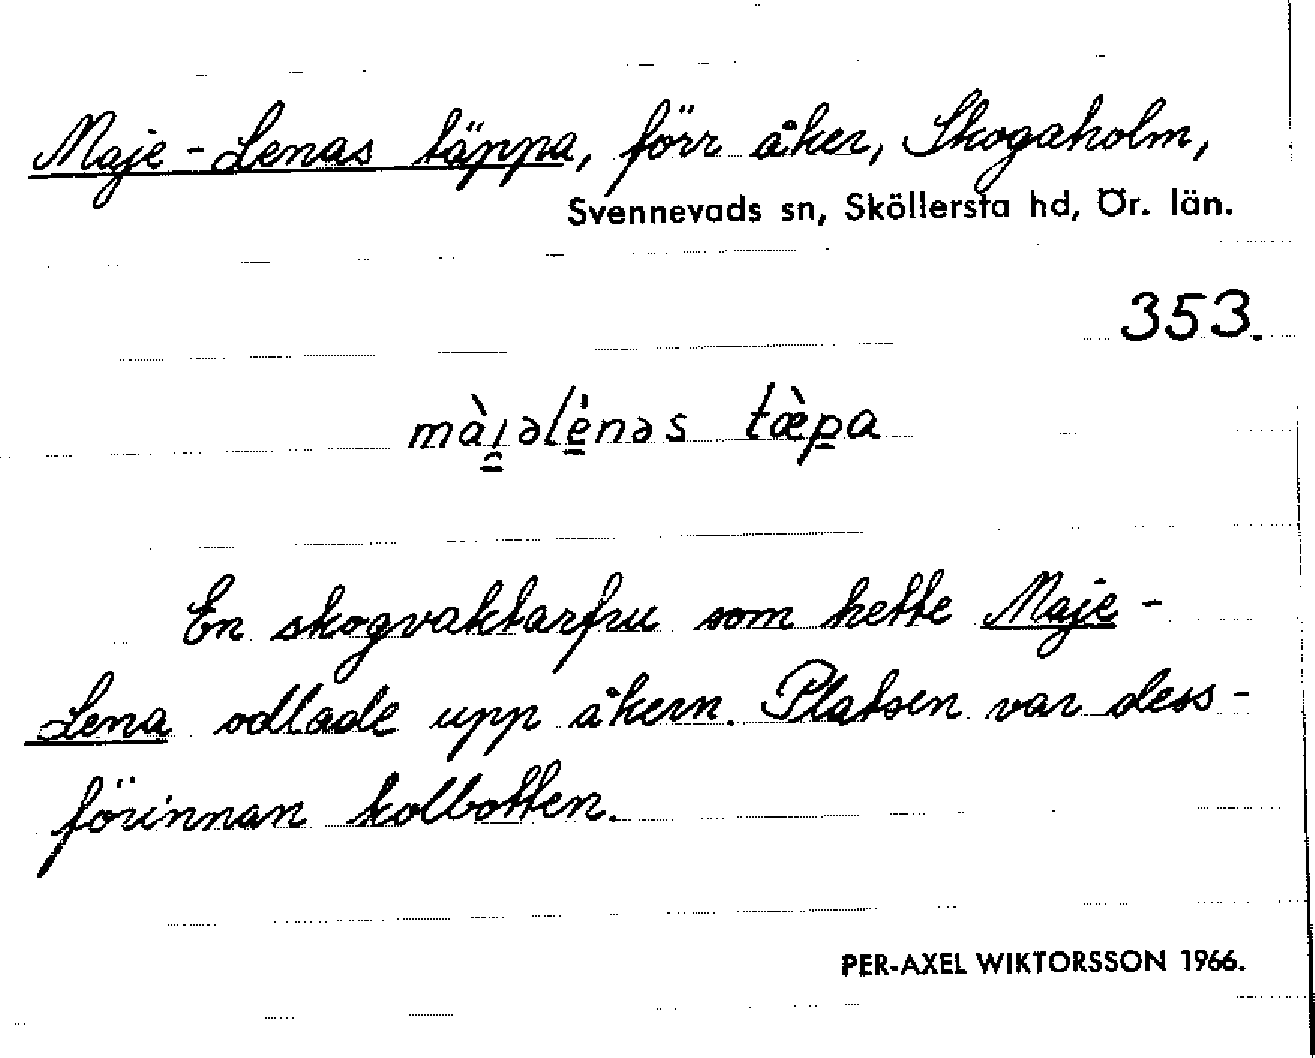 Maje-Lenas täppa, förr åker, Skogaholm,
Svennevads sn, Sköllersta hd, Ör. län.
353.
mài̯əlènəs tæ̀pa
En skogvaktarfru som hette Maje-
Lena odlade upp åkern. Platsen var dess-
förinnan kolbotten.
PER-AXEL WIKTORSSON 1966.